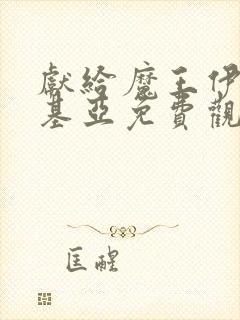 獻給魔王伊
基亞免費觀
匡醒